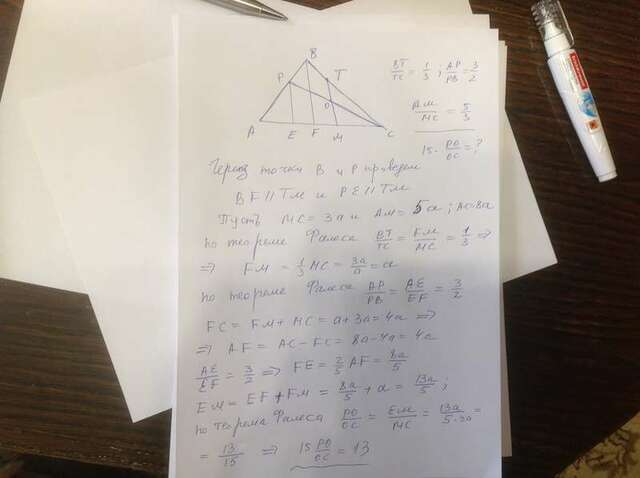 B
P T
O
A E F M C
BT/TC = 1/3 ; AP/PB = 3/2
AM/MC = 5/3
15 · PO/OC = ?
Через точки B и P проведем
BF || TM и PE || TM
Пусть MC = 3a и AM = 5a ; AC = 8a
по теореме Фалеса BT/TC = FM/MC = 1/3 ⇒
⇒ FM = 1/3 MC = 3a/3 = a
по теореме Фалеса AP/PB = AE/EF = 3/2
FC = FM + MC = a + 3a = 4a ⇒
⇒ AF = AC − FC = 8a − 4a = 4a
AE/EF = 3/2 ⇒ FE = 2/5 AF = 8a/5
EM = EF + FM = 8a/5 + a = 13a/5 ;
по теорема Фалеса PO/OC = EM/MC = 13a/5·3a =
= 13/15 ⇒ 15 PO/OC = 13